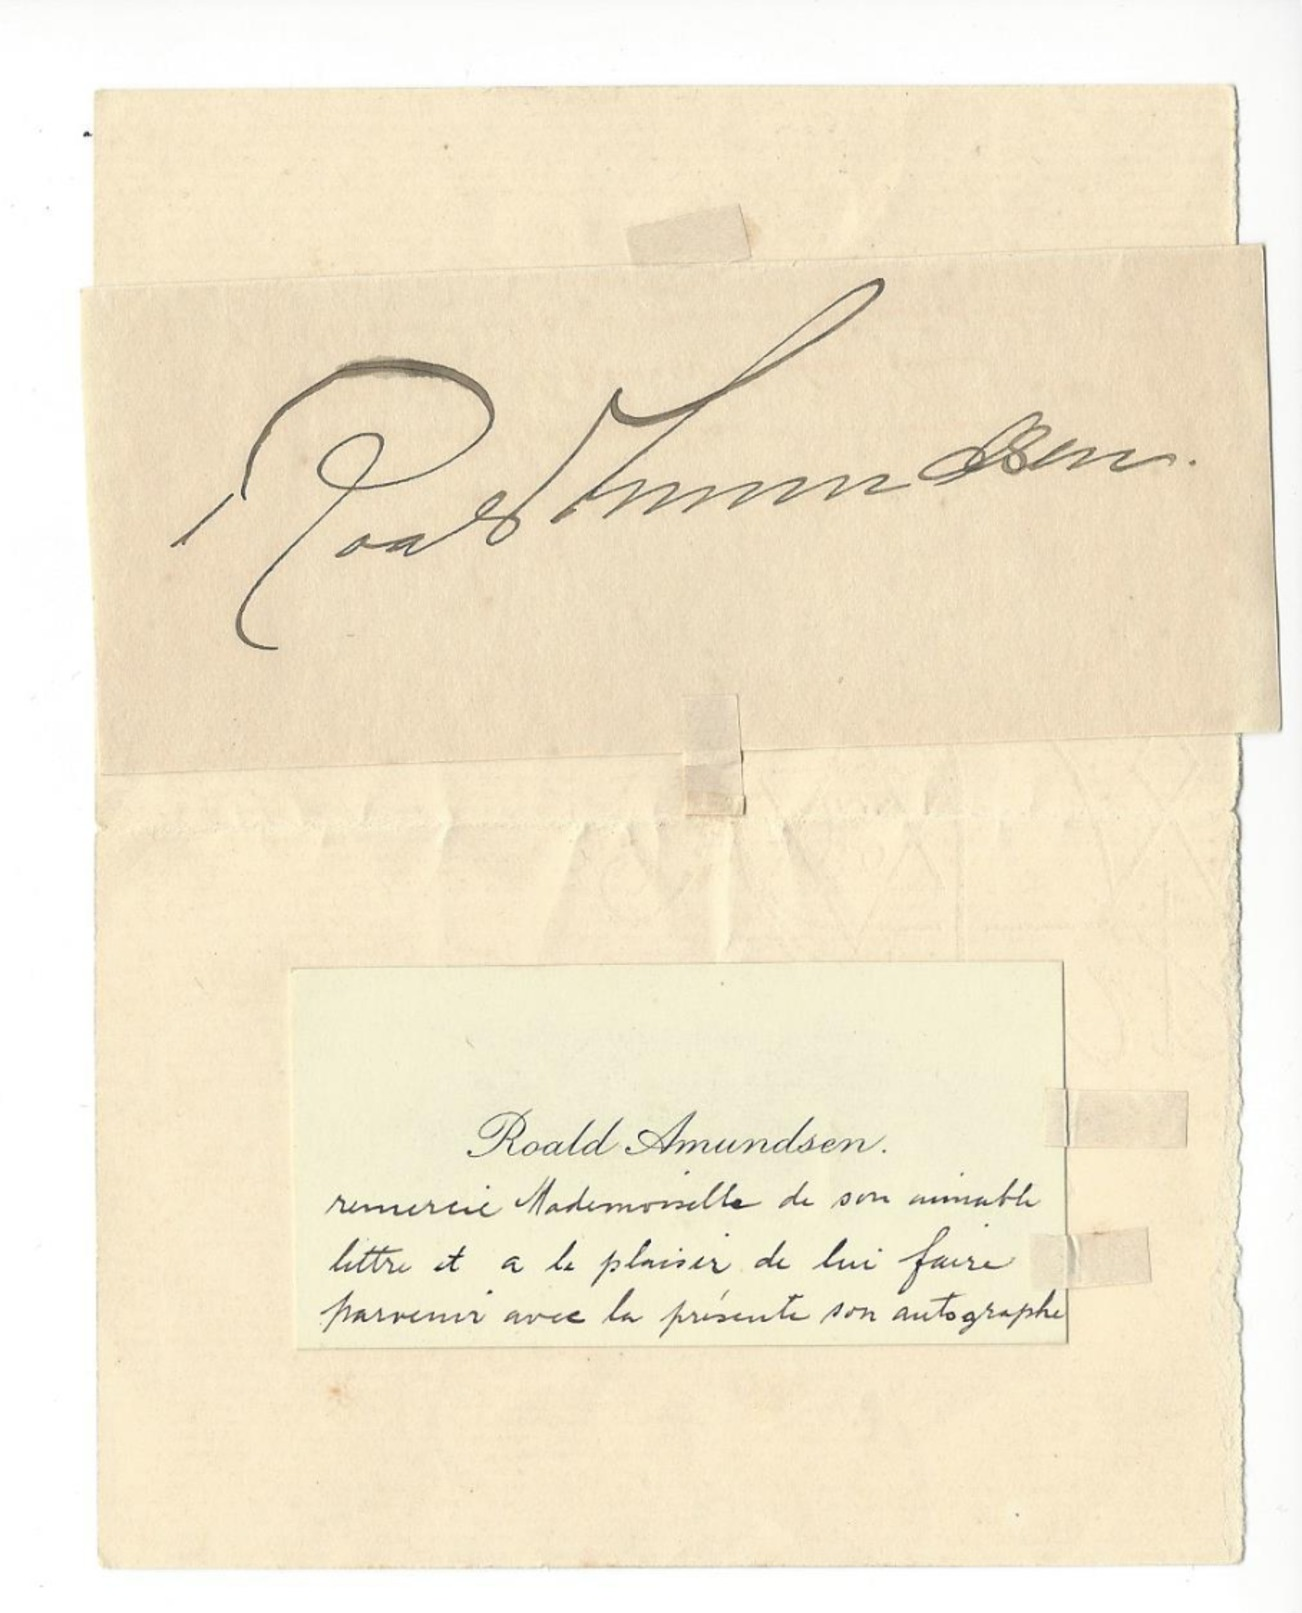 Roald Amundsen.
Roald Amundsen.
remercie Mademoiselle de son aimable
lettre et a le plaisir de lui faire
parvenir avec la présente son autographe